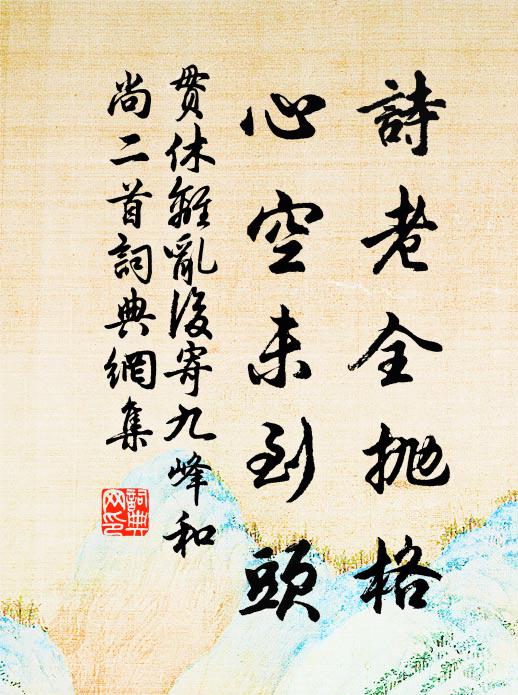 詩老全抛格
心空未到頭
貫休離亂後寄九峰和
尚二首詞典網集
詞典
网印